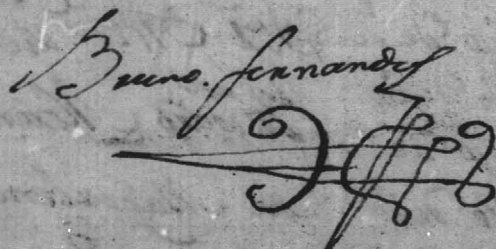 Bruno. fernandes